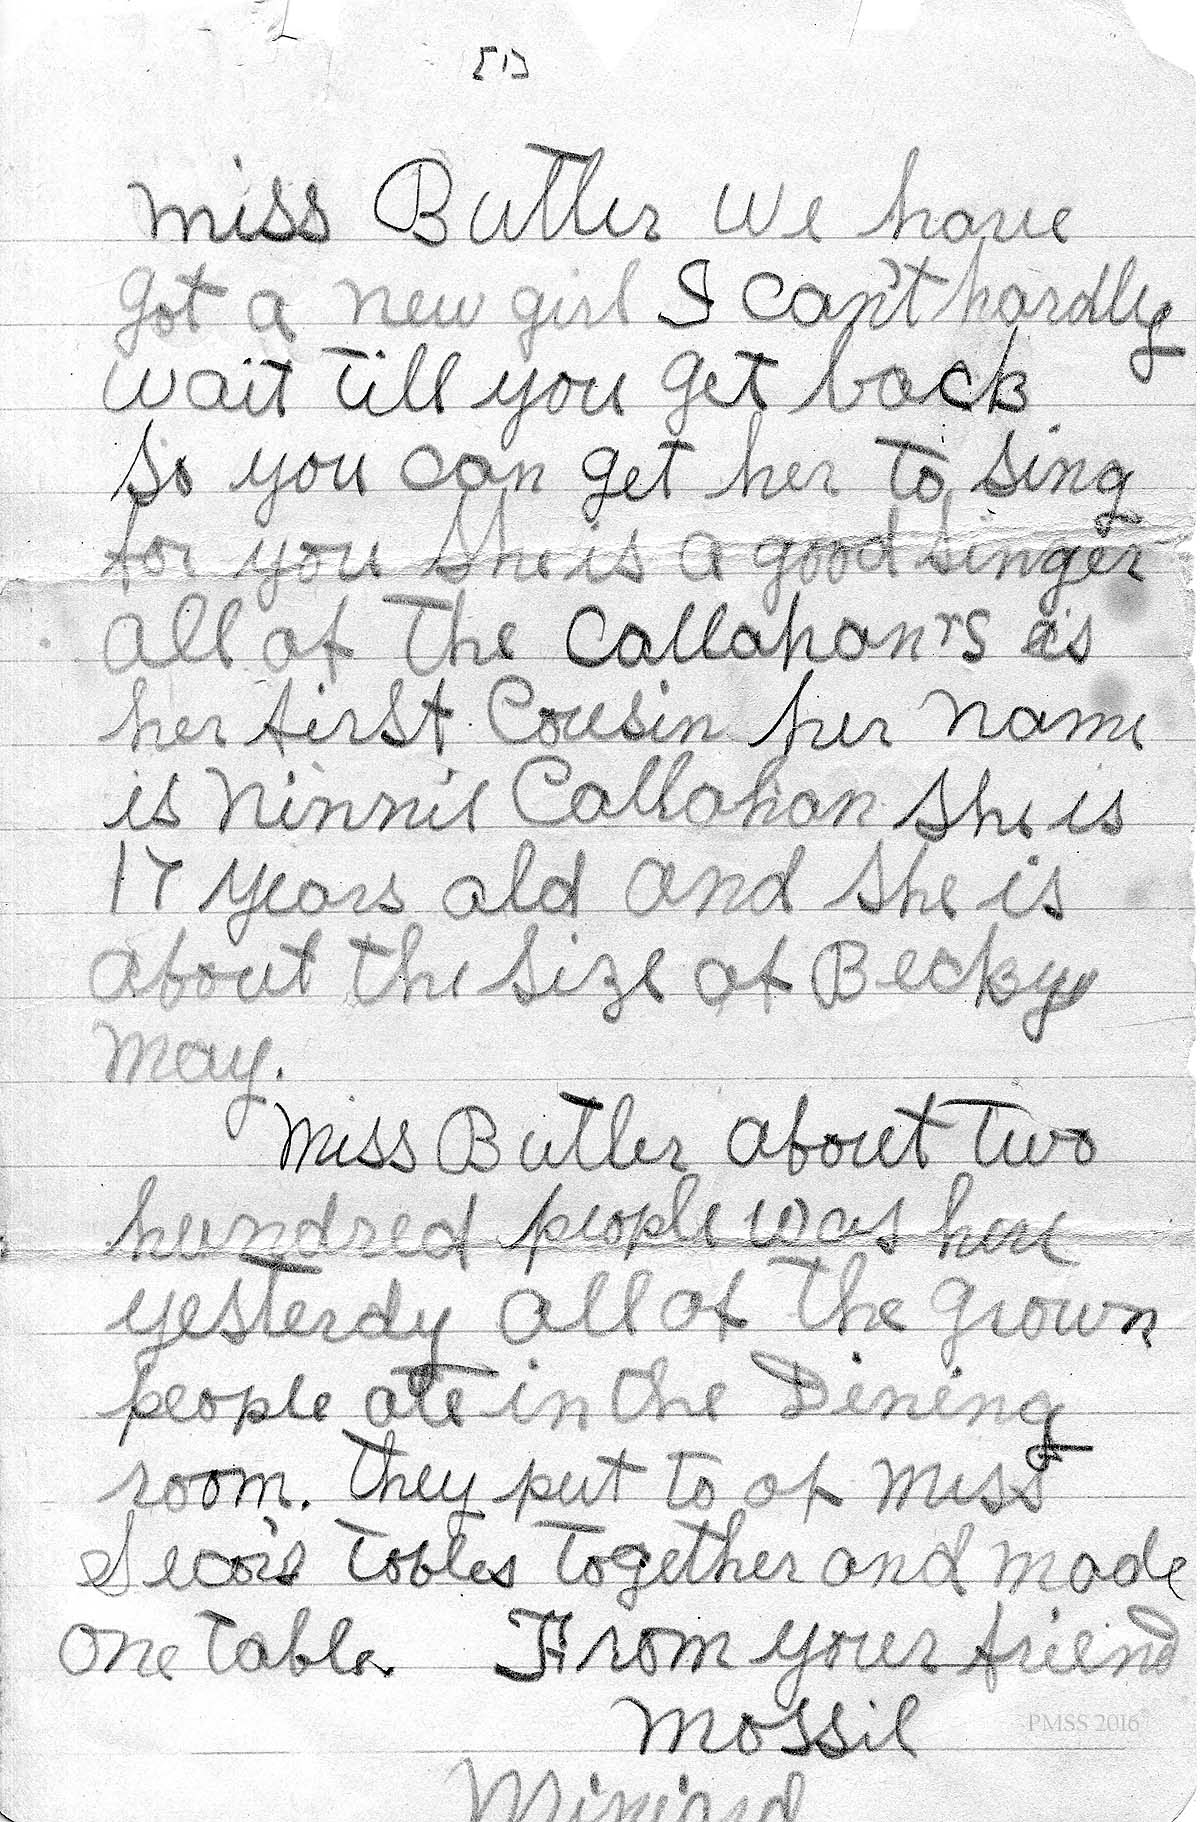 Miss Butler We have
got a new girl I can't hardly
wait till you get back
So you can get her to sing
for you She is a good singer
all of the Callahan's is
her first Cousin her name
is Ninnie Callahan She is
17 years old and she is
about the size of Becky
May.
Miss Butler about two
hundred people was here
yesterdy all of the grown
people ate in the Dining
room. they put to of Miss
tables together and made
one table. From your friend
Mossie
Miniard
PMSS 2016